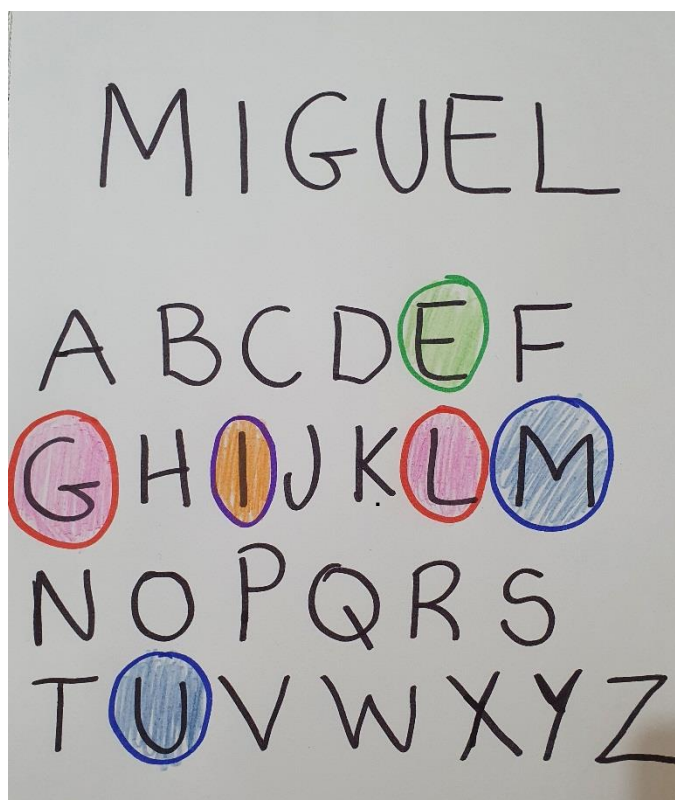 MIGUEL
A B C D E F
G H I J K L M
N O P Q R S
T U V W X Y Z